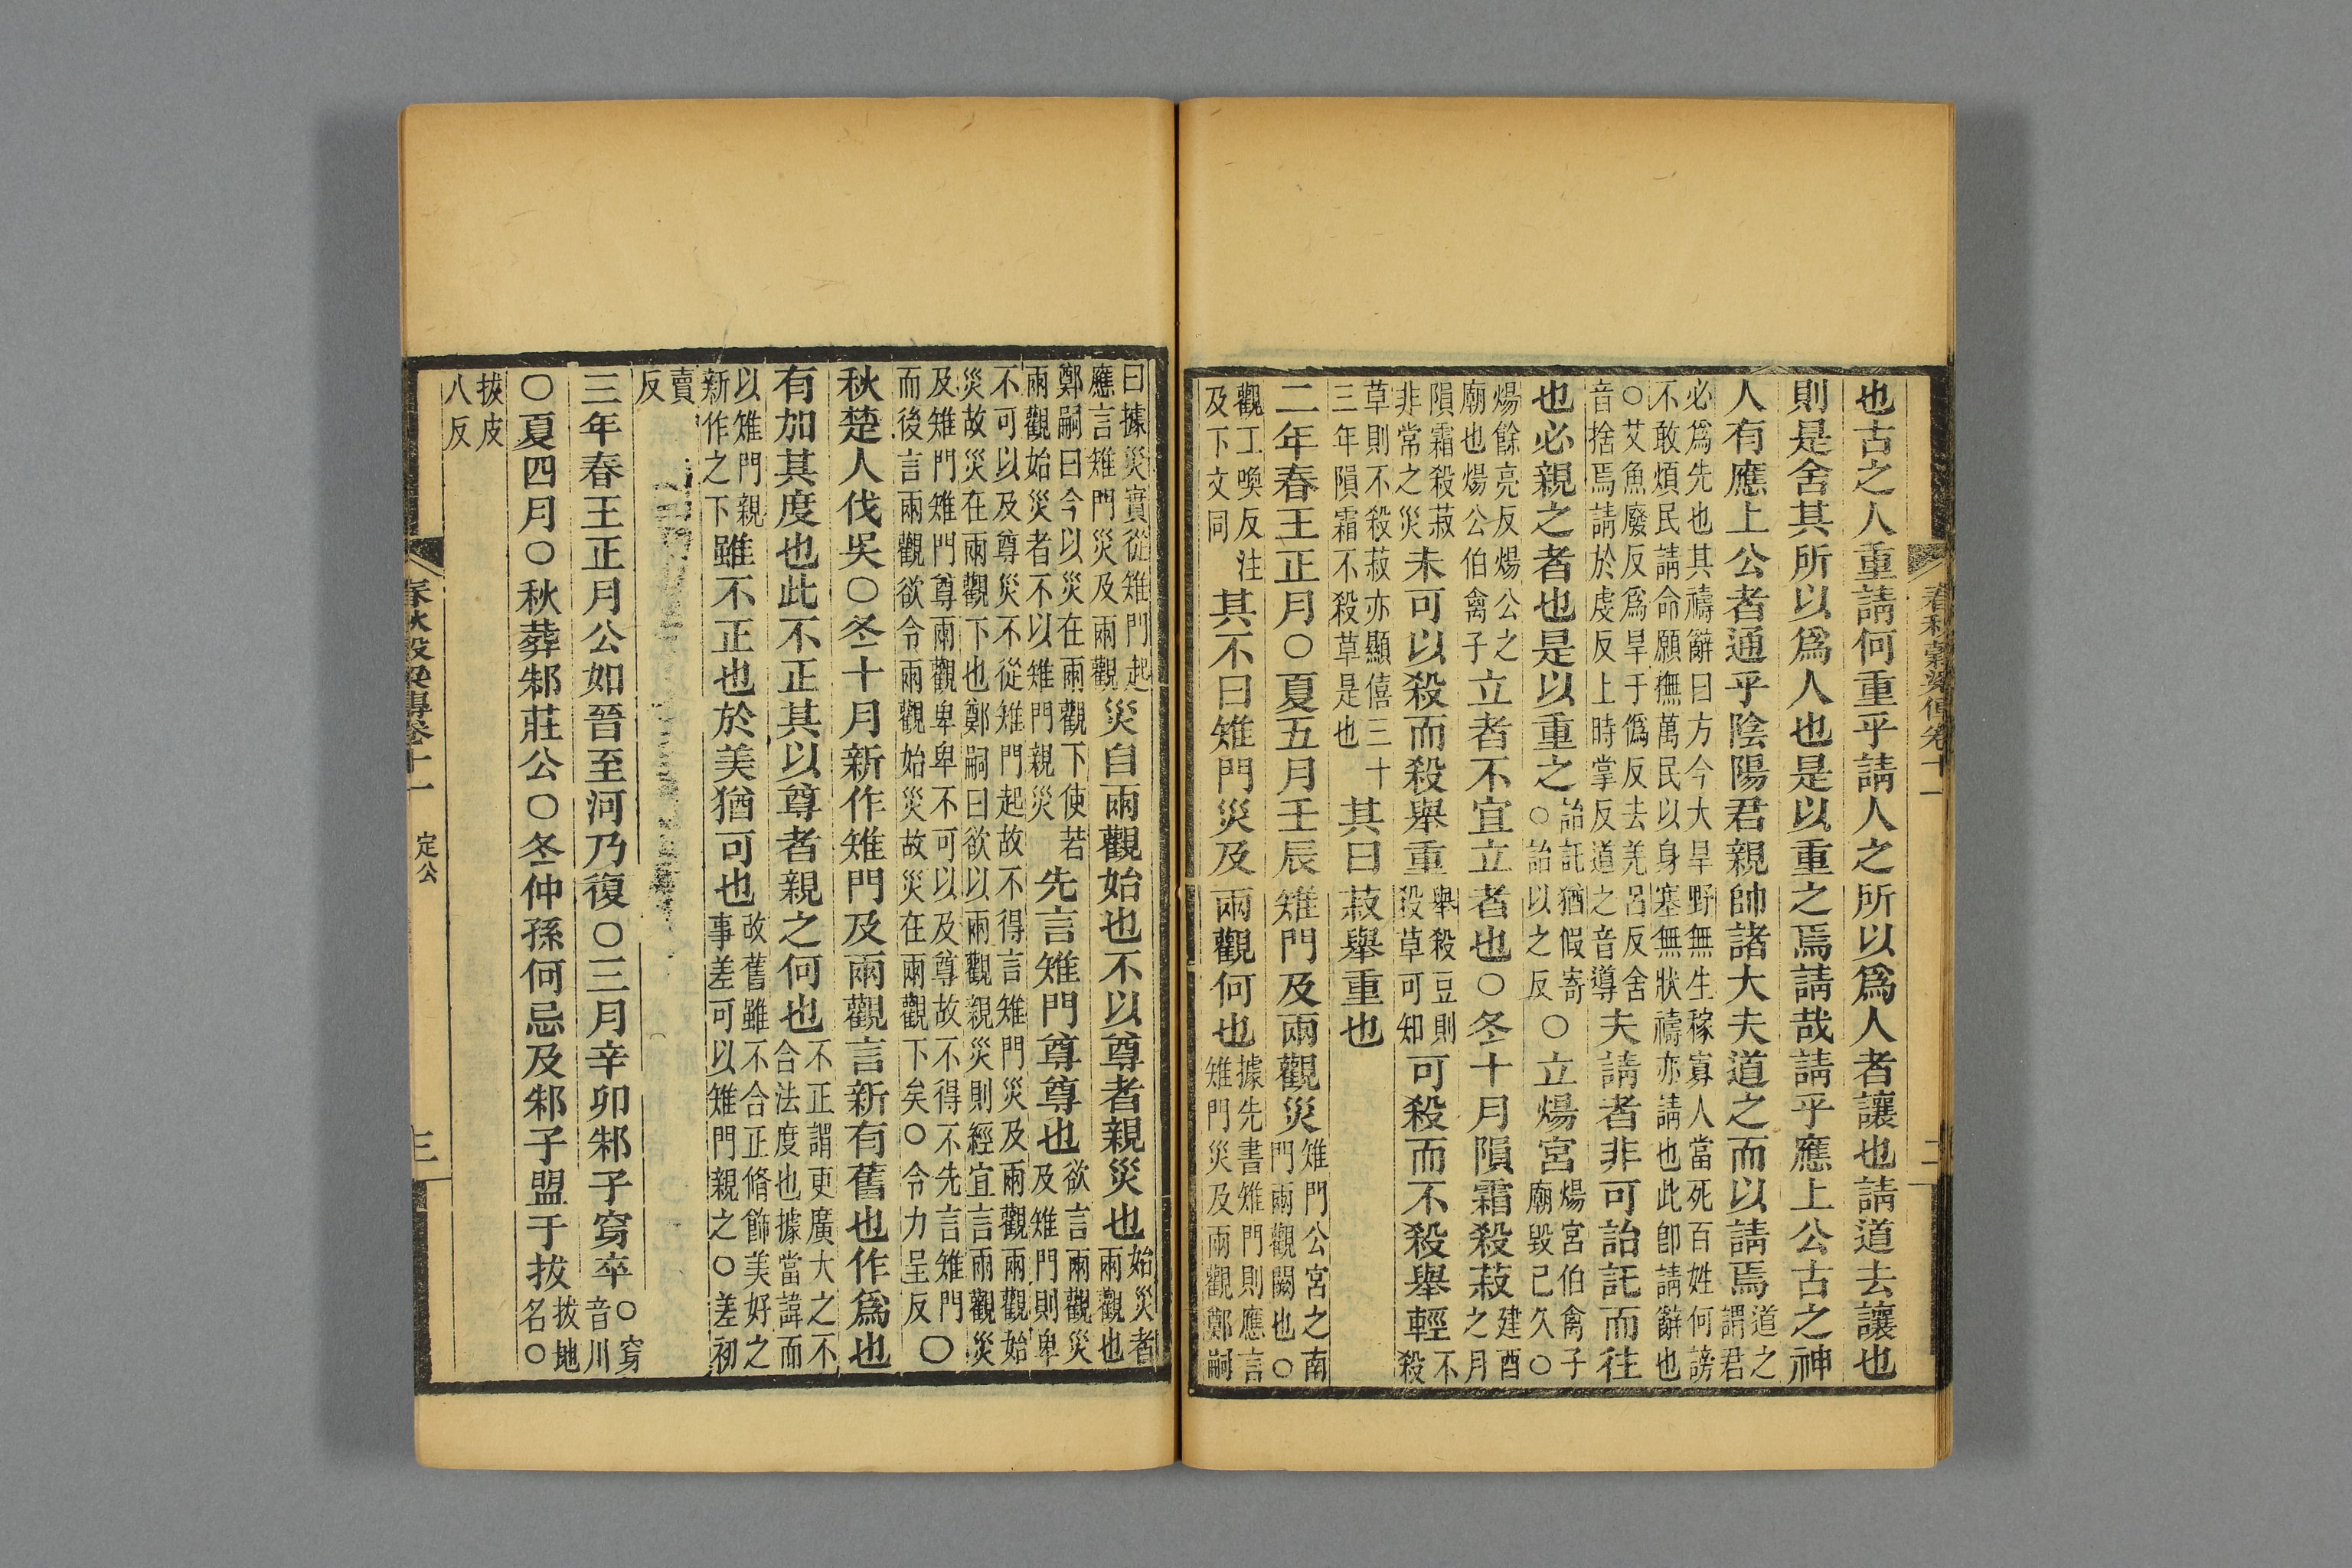 春秋穀梁傳卷十一　二
也古之人重請何重乎請人之所以爲人者讓也請道去讓也
則是舍其所以爲人也是以重之焉請哉請乎應上公古之神
人有應上公者通乎陰陽君親帥諸大夫道之而以請焉道之謂君
必爲先也其禱辭曰方今大旱野無生稼寡人當死百姓何謗不敢煩民請命願撫萬民以身塞無狀禱亦請也此卽請辭也
○艾魚廢反爲旱于僞反去羌呂反舍音捨焉請於虔反上時掌反道之音導夫請者非可詒託而往
也必親之者也是以重之詒託猶假寄○詒以之反○立煬宮煬宮伯禽子廟毀已久○
煬餘亮反煬公之廟也煬公伯禽子立者不宜立者也○冬十月隕霜殺菽建酉之月
隕霜殺菽非常之災未可以殺而殺舉重舉殺豆則殺草可知可殺而不殺舉輕不殺
草則不殺菽亦顯僖三十三年隕霜不殺草是也其曰菽舉重也
二年春王正月○夏五月壬辰雉門及兩觀災雉門公宮之南門兩觀闕也○
觀工喚反注及下文同其不曰雉門災及兩觀何也據先書雉門則應言雉門災及兩觀鄭嗣
曰據災實從雉門起應言雉門災及兩觀災自兩觀始也不以尊者親災也始災者兩觀也
鄭嗣曰今以災在兩觀下使若兩觀始災者不以雉門親災先言雉門尊尊也欲言兩觀災及雉門則卑
不可以及尊災不從雉門起故不得言雉門災及兩觀兩觀始災故災在兩觀下也鄭嗣曰欲以兩觀親災則經宜言兩觀災
及雉門雉門尊兩觀卑卑不可以及尊故不得不先言雉門而後言兩觀欲令兩觀始災故災在兩觀下矣○令力呈反○
秋楚人伐吳○冬十月新作雉門及兩觀言新有舊也作爲也
有加其度也此不正其以尊者親之何也不正謂更廣大之不合法度也據當諱而
以雉門親新作之下雖不正也於美猶可也故舊雖不合正脩飾美好之事差可以雉門親之○差初
賣反
三年春王正月公如晉至河乃復○三月辛卯邾子穿卒○穿音川
○夏四月○秋葬邾莊公○冬仲孫何忌及邾子盟于拔拔地名○
拔皮八反
春秋穀梁傳卷十一　定公　三